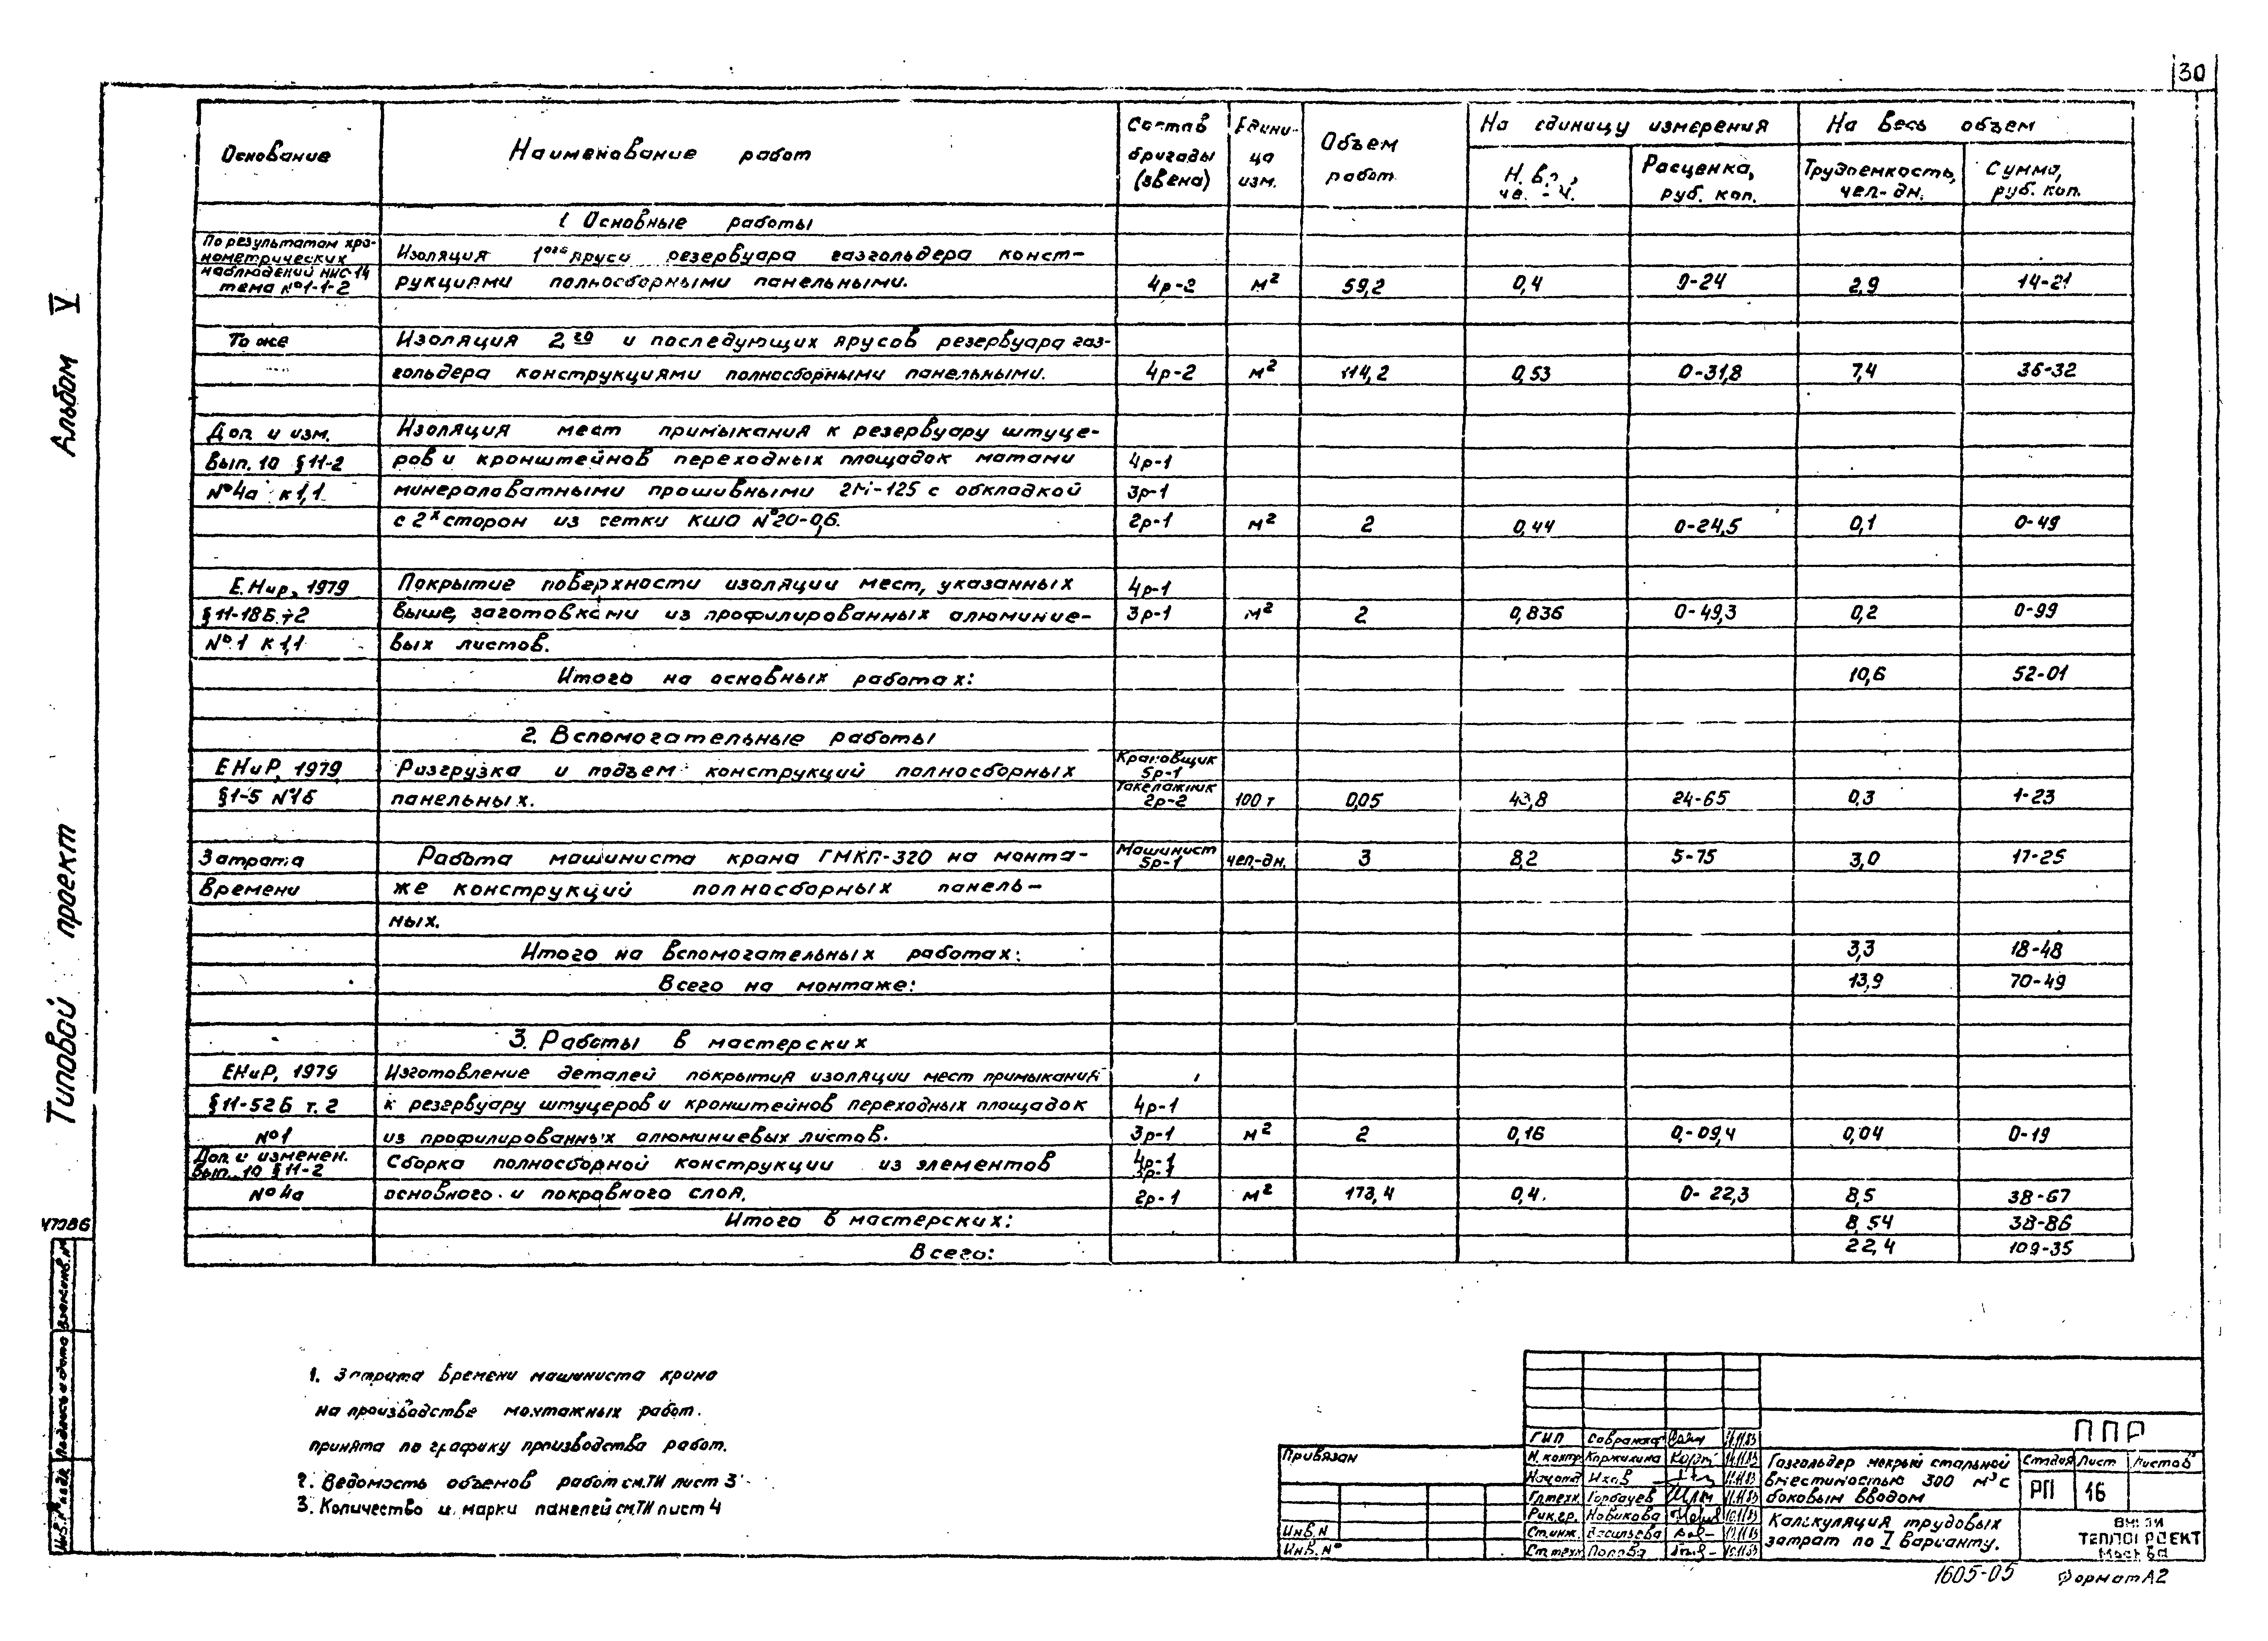 30
Основание
Наименование работ
Состав бригады (звена)
Едини-ца изм.
Объем работ
На единицу измерения
На весь объем
Расценка, руб. коп.
Трудоемкость, чел-дн.
Сумма, руб. коп.
1. Основные работы
По результатам хро-
нометрических
наблюдений НИС-14
тема №1-1-2
Изоляция 1ого яруса резервуара газгольдера конст-
рукциями полносборными панельными. 4р-2 м² 59,2 0,4 0-24 2,9 14-21
То же Изоляция 2го и последующих ярусов резервуара газ-
гольдера конструкциями полносборными панельными. 4р-2 м² 114,2 0,53 0-31,8 7,4 36-32
Доп. и изм. Изоляция мест примыкания к резервуару штуце-
Вып. 10 §11-2 ров и кронштейнов переходных площадок матами 4р-1
№4а к1,1 минераловатными прошивными 2М-125 с обкладкой 3р-1
с 2х сторон из сетки КШО №20-0,6. 2р-1 м² 2 0,44 0-24,5 0,1 0-49
ЕНиР, 1979 Покрытие поверхности изоляции мест, указанных 4р-1
§11-18Б т2 выше, заготовками из профилированных алюминие- 3р-1 м² 2 0,836 0-49,3 0,2 0-99
№1 к1,1 вых листов.
Итого на основных работах: 10,6 52-01
2. Вспомогательные работы
ЕНиР, 1979 Разгрузка и подъем конструкций полносборных Крановщик 5р-1
§1-5 №1б панельных. Такелажник 2р-2 100 т 0,05 43,8 24-65 0,3 1-23
Затрата Работа машиниста крана ГМКП-320 на монта- Машинист 5р-1 чел-дн. 3 8,2 5-75 3,0 17-25
времени же конструкций полносборных панель-
ных.
Итого на вспомогательных работах: 3,3 18-48
Всего на монтаже: 13,9 70-49
3. Работы в мастерских
ЕНиР, 1979 Изготовление деталей покрытия изоляции мест примыкания
§11-52Б т. 2 к резервуару штуцеров и кронштейнов переходных площадок 4р-1
№1 из профилированных алюминиевых листов. 3р-1 м² 2 0,16 0-09,4 0,04 0-19
Доп. и изменен.
Вып. 10 §11-2
Сборка полносборной конструкции из элементов 4р-1 3р-1
№4а основного и покровного слоя. 2р-1 м² 173,4 0,4 0-22,3 8,5 38-67
Итого в мастерских: 8,54 38-86
Всего: 22,4 109-35
1. Затрата времени машиниста крана
на производстве монтажных работ.
принята по графику производства работ.
2. Ведомость объемов работ см.ТИ лист 3
3. Количество и марки панелей см.ТИ лист 4
Альбом V
Типовой проект
Инв.№ подл. Подпись и дата Взам.инв.№
Привязан
Инв. №
Инв. №
ГИП
Н. контр. Коржихина
Нач.отд.
Гл.техн. Горбачев
Рук.гр. Новикова
Ст.инж. Васильева
Ст.техн. Попова
ППР
Газгольдер мокрый стальной
вместимостью 300 м³ с
боковым вводом
Стадия Лист Листов
РП 16
Калькуляция трудовых
затрат по I варианту.
ВНИПИ
ТЕПЛОПРОЕКТ
Москва
1605-05
Формат А2